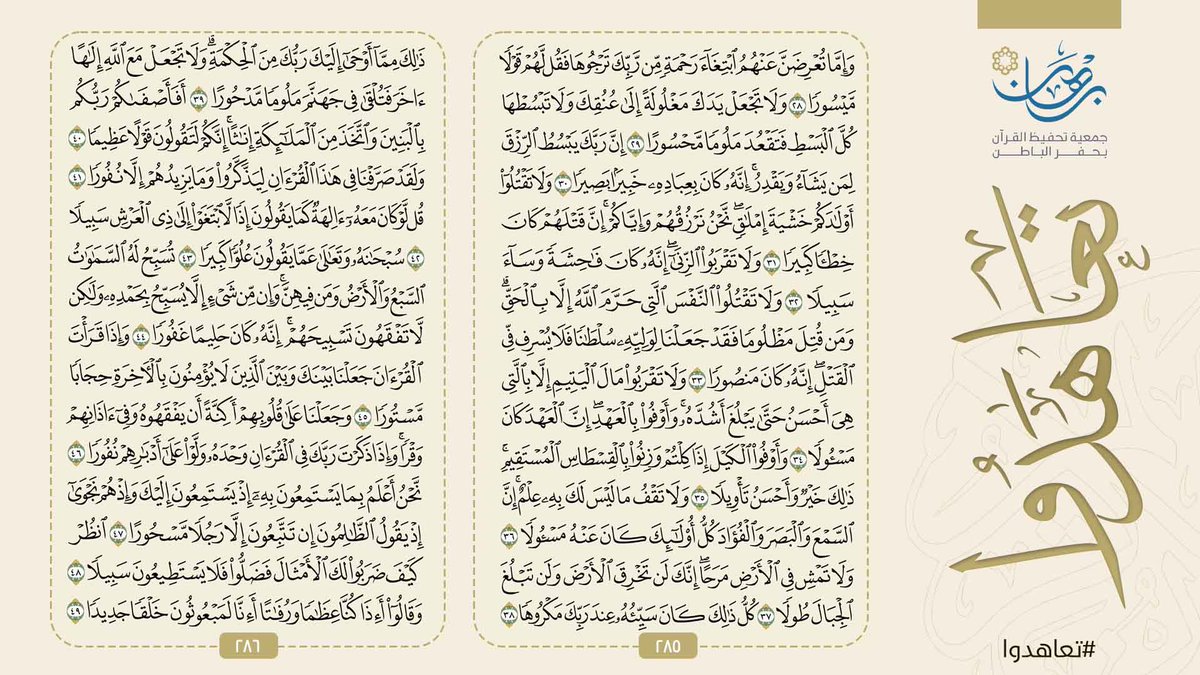 برهان
جمعية تحفيظ القرآن
بحفر الباطن
تعاهدوا
#تعاهدوا
وَإِمَّا تُعْرِضَنَّ عَنْهُمُ ٱبْتِغَآءَ رَحْمَةٍ مِّن رَّبِّكَ تَرْجُوهَا فَقُل لَّهُمْ قَوْلًا
مَّيْسُورًا ٢٨ وَلَا تَجْعَلْ يَدَكَ مَغْلُولَةً إِلَىٰ عُنُقِكَ وَلَا تَبْسُطْهَا
كُلَّ ٱلْبَسْطِ فَتَقْعُدَ مَلُومًا مَّحْسُورًا ٢٩ إِنَّ رَبَّكَ يَبْسُطُ ٱلرِّزْقَ
لِمَن يَشَآءُ وَيَقْدِرُ ۚ إِنَّهُۥ كَانَ بِعِبَادِهِۦ خَبِيرًۢا بَصِيرًا ٣٠ وَلَا تَقْتُلُوٓا۟
أَوْلَـٰدَكُمْ خَشْيَةَ إِمْلَـٰقٍ ۖ نَّحْنُ نَرْزُقُهُمْ وَإِيَّاكُمْ ۚ إِنَّ قَتْلَهُمْ كَانَ
خِطْـًٔا كَبِيرًا ٣١ وَلَا تَقْرَبُوا۟ ٱلزِّنَىٰٓ ۖ إِنَّهُۥ كَانَ فَـٰحِشَةً وَسَآءَ
سَبِيلًا ٣٢ وَلَا تَقْتُلُوا۟ ٱلنَّفْسَ ٱلَّتِى حَرَّمَ ٱللَّهُ إِلَّا بِٱلْحَقِّ ۗ
وَمَن قُتِلَ مَظْلُومًا فَقَدْ جَعَلْنَا لِوَلِيِّهِۦ سُلْطَـٰنًا فَلَا يُسْرِف فِّى
ٱلْقَتْلِ ۖ إِنَّهُۥ كَانَ مَنصُورًا ٣٣ وَلَا تَقْرَبُوا۟ مَالَ ٱلْيَتِيمِ إِلَّا بِٱلَّتِى
هِىَ أَحْسَنُ حَتَّىٰ يَبْلُغَ أَشُدَّهُۥ ۚ وَأَوْفُوا۟ بِٱلْعَهْدِ ۖ إِنَّ ٱلْعَهْدَ كَانَ
مَسْـُٔولًا ٣٤ وَأَوْفُوا۟ ٱلْكَيْلَ إِذَا كِلْتُمْ وَزِنُوا۟ بِٱلْقِسْطَاسِ ٱلْمُسْتَقِيمِ ۚ
ذَٰلِكَ خَيْرٌ وَأَحْسَنُ تَأْوِيلًا ٣٥ وَلَا تَقْفُ مَا لَيْسَ لَكَ بِهِۦ عِلْمٌ ۚ إِنَّ
ٱلسَّمْعَ وَٱلْبَصَرَ وَٱلْفُؤَادَ كُلُّ أُو۟لَـٰٓئِكَ كَانَ عَنْهُ مَسْـُٔولًا ٣٦
وَلَا تَمْشِ فِى ٱلْأَرْضِ مَرَحًا ۖ إِنَّكَ لَن تَخْرِقَ ٱلْأَرْضَ وَلَن تَبْلُغَ
ٱلْجِبَالَ طُولًا ٣٧ كُلُّ ذَٰلِكَ كَانَ سَيِّئُهُۥ عِندَ رَبِّكَ مَكْرُوهًا ٣٨
٢٨٥
ذَٰلِكَ مِمَّآ أَوْحَىٰٓ إِلَيْكَ رَبُّكَ مِنَ ٱلْحِكْمَةِ ۗ وَلَا تَجْعَلْ مَعَ ٱللَّهِ إِلَـٰهًا
ءَاخَرَ فَتُلْقَىٰ فِى جَهَنَّمَ مَلُومًا مَّدْحُورًا ٣٩ أَفَأَصْفَىٰكُمْ رَبُّكُم
بِٱلْبَنِينَ وَٱتَّخَذَ مِنَ ٱلْمَلَـٰٓئِكَةِ إِنَـٰثًا ۚ إِنَّكُمْ لَتَقُولُونَ قَوْلًا عَظِيمًا ٤٠
وَلَقَدْ صَرَّفْنَا فِى هَـٰذَا ٱلْقُرْءَانِ لِيَذَّكَّرُوا۟ وَمَا يَزِيدُهُمْ إِلَّا نُفُورًا ٤١
قُل لَّوْ كَانَ مَعَهُۥٓ ءَالِهَةٌ كَمَا يَقُولُونَ إِذًا لَّٱبْتَغَوْا۟ إِلَىٰ ذِى ٱلْعَرْشِ سَبِيلًا
٤٢ سُبْحَـٰنَهُۥ وَتَعَـٰلَىٰ عَمَّا يَقُولُونَ عُلُوًّا كَبِيرًا ٤٣ تُسَبِّحُ لَهُ ٱلسَّمَـٰوَٰتُ
ٱلسَّبْعُ وَٱلْأَرْضُ وَمَن فِيهِنَّ ۚ وَإِن مِّن شَىْءٍ إِلَّا يُسَبِّحُ بِحَمْدِهِۦ وَلَـٰكِن
لَّا تَفْقَهُونَ تَسْبِيحَهُمْ ۗ إِنَّهُۥ كَانَ حَلِيمًا غَفُورًا ٤٤ وَإِذَا قَرَأْتَ
ٱلْقُرْءَانَ جَعَلْنَا بَيْنَكَ وَبَيْنَ ٱلَّذِينَ لَا يُؤْمِنُونَ بِٱلْـَٔاخِرَةِ حِجَابًا
مَّسْتُورًا ٤٥ وَجَعَلْنَا عَلَىٰ قُلُوبِهِمْ أَكِنَّةً أَن يَفْقَهُوهُ وَفِىٓ ءَاذَانِهِمْ
وَقْرًا ۚ وَإِذَا ذَكَرْتَ رَبَّكَ فِى ٱلْقُرْءَانِ وَحْدَهُۥ وَلَّوْا۟ عَلَىٰٓ أَدْبَـٰرِهِمْ نُفُورًا ٤٦
نَّحْنُ أَعْلَمُ بِمَا يَسْتَمِعُونَ بِهِۦٓ إِذْ يَسْتَمِعُونَ إِلَيْكَ وَإِذْ هُمْ نَجْوَىٰٓ
إِذْ يَقُولُ ٱلظَّـٰلِمُونَ إِن تَتَّبِعُونَ إِلَّا رَجُلًا مَّسْحُورًا ٤٧ ٱنظُرْ
كَيْفَ ضَرَبُوا۟ لَكَ ٱلْأَمْثَالَ فَضَلُّوا۟ فَلَا يَسْتَطِيعُونَ سَبِيلًا ٤٨
وَقَالُوٓا۟ أَءِذَا كُنَّا عِظَـٰمًا وَرُفَـٰتًا أَءِنَّا لَمَبْعُوثُونَ خَلْقًا جَدِيدًا ٤٩
٢٨٦